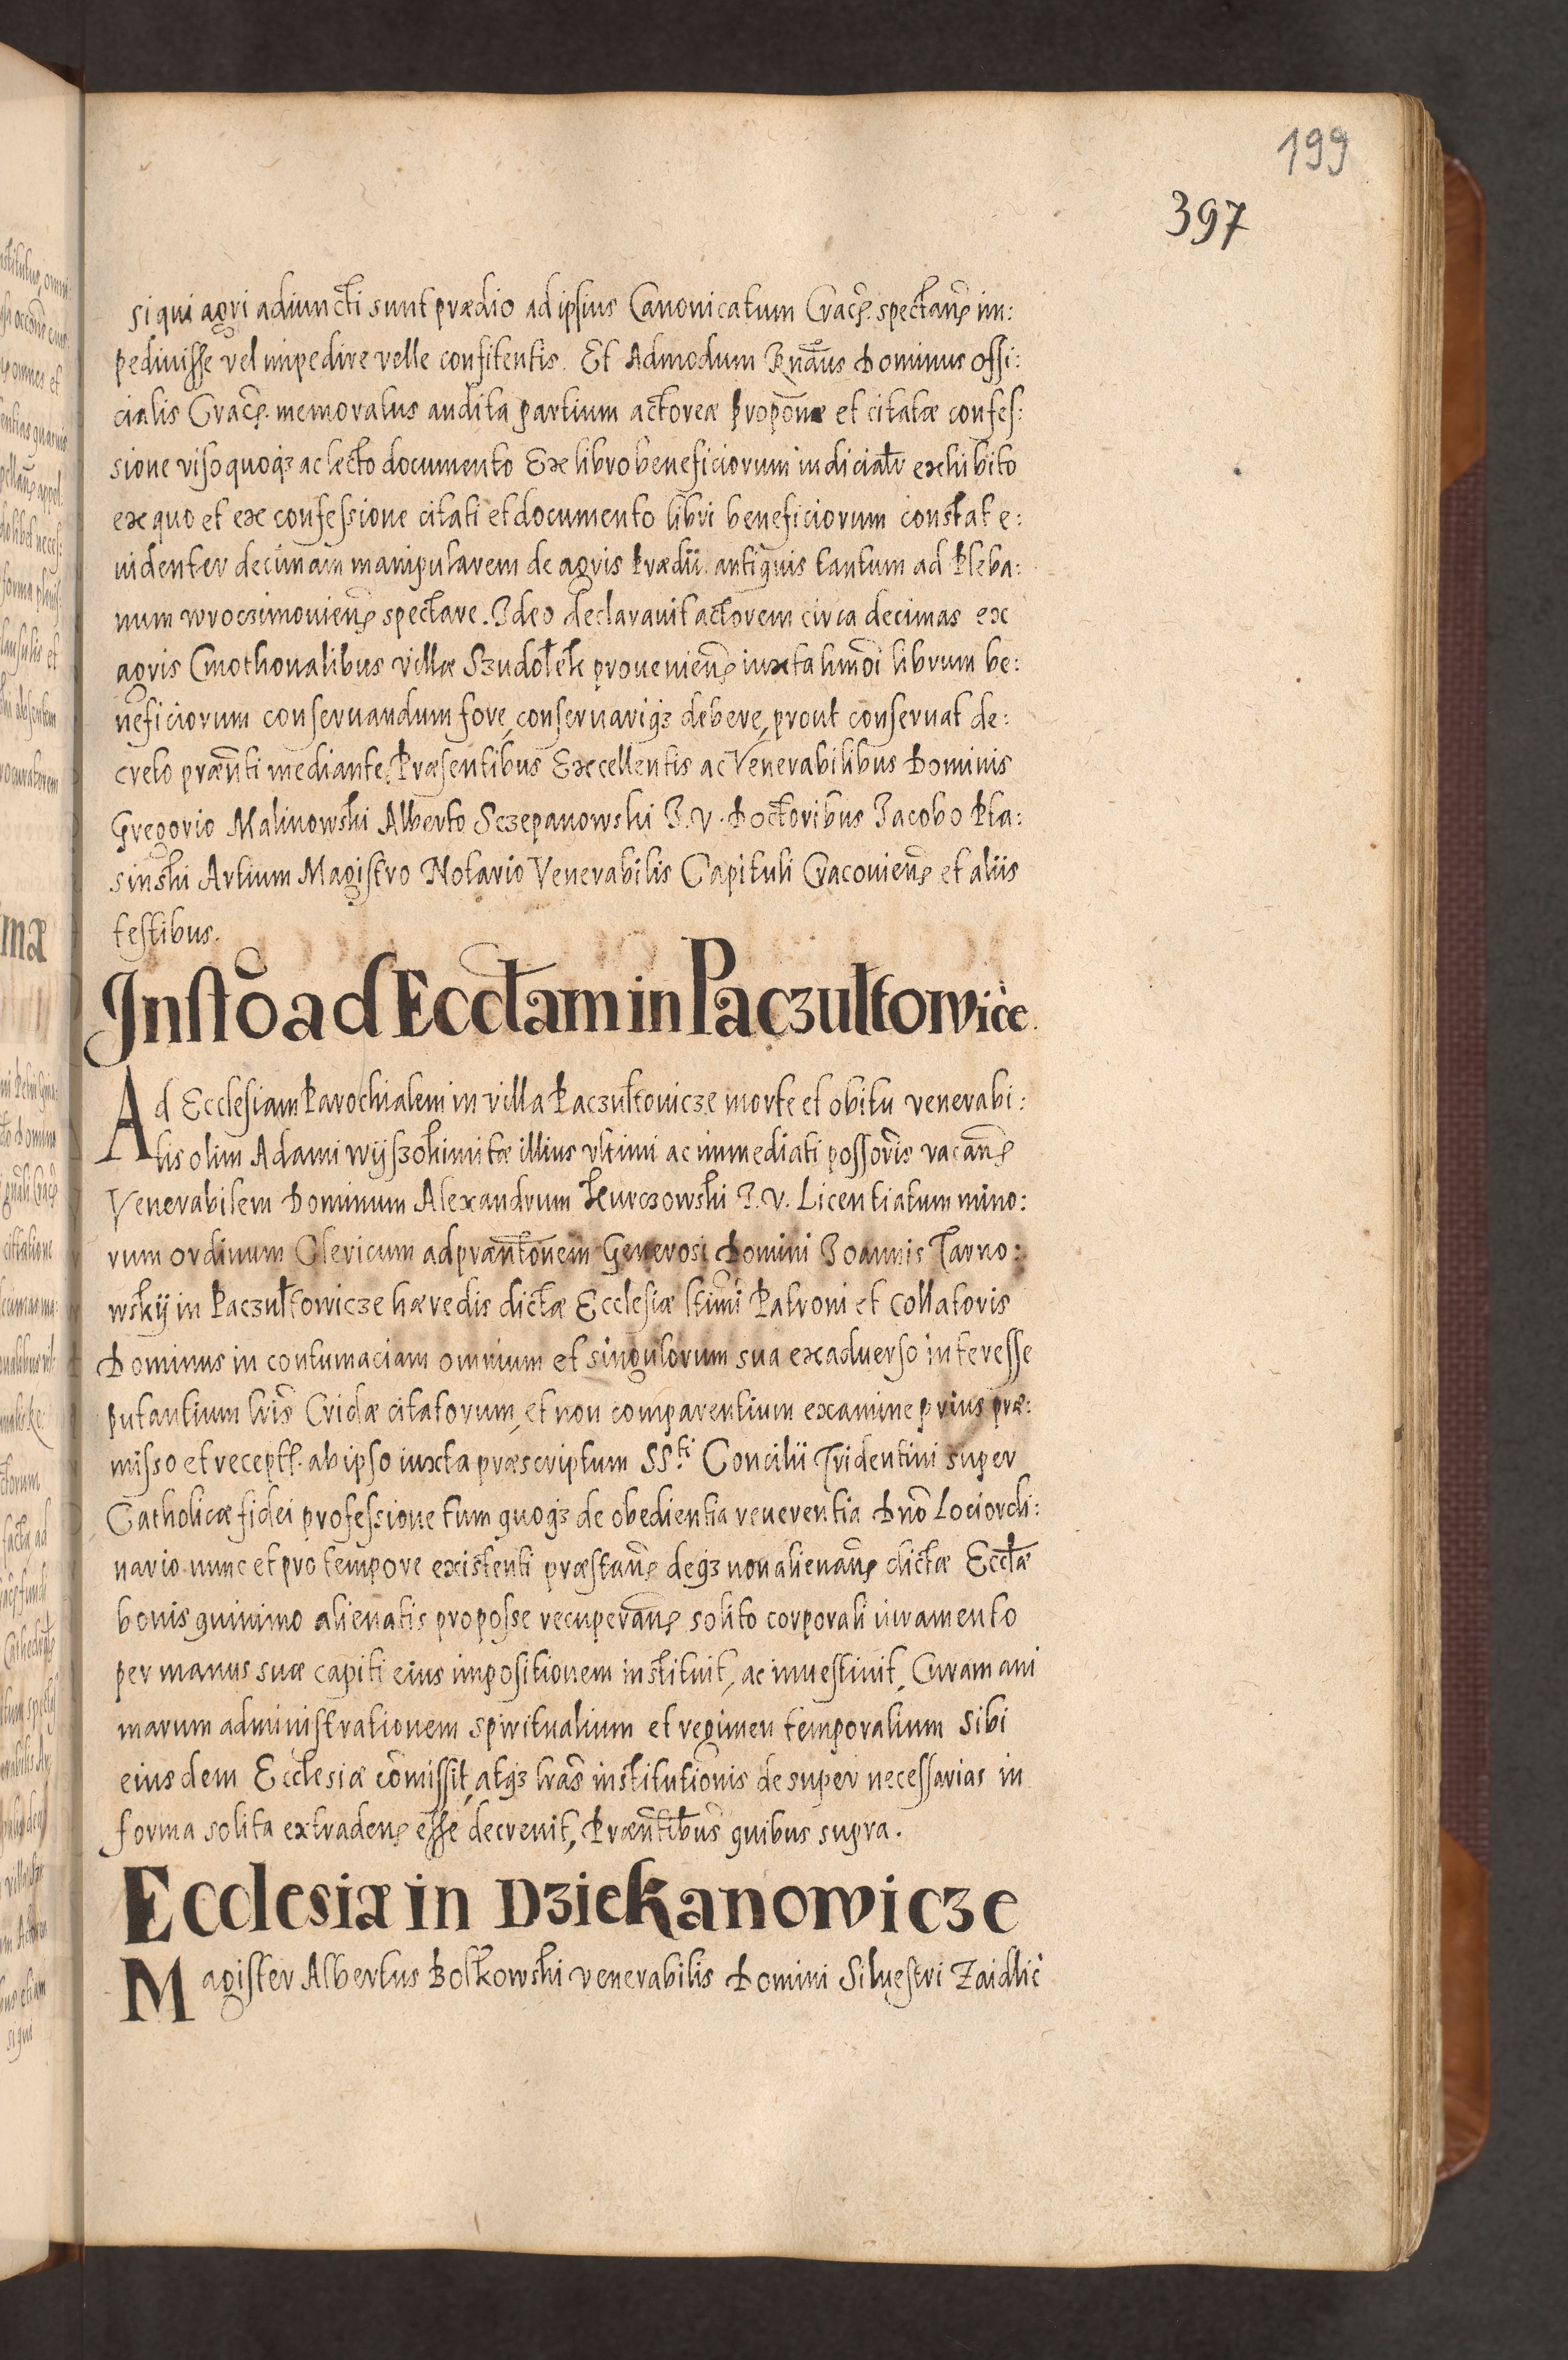 199
397
si qui agri adiuncti sunt prædio ad ipsius Canonicatum Crac̃. spectañ im:
pedivisse vel impedire velle confitentis. Et Admodum Rndus Dominus offi:
cialis Crac̃. memoratus audita partium actoreæ propõne et citatæ confes:
sione viso quoqȝ ac lecto documento Ex libro beneficiorum iudicialr̃ exhibito
ex quo et ex confessione citati et documento libri beneficiorum constat e:
uidenter decimam manipularem de agris Prædii antiquis tantum ad Pleba:
num wrocimouieñ spectare. Ideo declarauit actorem circa decimas ex
agris Cmethonalibus villæ Szudolek proueñieñ iuxta hmõi librum be:
neficiorum conseruandum fore, conseruariqȝ debere, prout conseruat de:
creto præñti mediante. Præsentibus Excellentis ac Venerabilibus Dominis
Gregorio Malinowski Alberto Sczepanowski I. V. Doctoribus Iacobo Pta:
sinski Artium Magistro Notario Venerabilis Capituli Cracouieñ et aliis
testibus.
Instõ ad Eccłam in Paczułtowicė.
Ad Ecclesiam Parochialem in villa Paczułtouicze morte et obitu venerabi:
lis olim Adami wyszohimitæ illius vltimi ac immediati possoris vacañ
Venerabilem Dominum Alexandrum Kurczowski I. V. Licentiatum mino:
rum ordinum Clericum ad præñtõnem Generosi Domini Ioannis Tarno:
wskij in Paczułtowicze hæredis dictæ Ecclesiæ ltimi Patroni et Collatoris
Dominus in contumaciam omnium et singulorum sua ex aduerso interesse
putantium lrĩs Cridæ citatorum, et non comparentium examine prius præ:
misso et recept. ab ipso iuxta præscriptum SS.ti Concilii Tridentini super
Catholicæ fidei professione tum quoqȝ de obedientia reuerentia Dnõ Loci ordi:
nario nunc et pro tempore existenti præstañ deqȝ non alienañ dictæ Eccłæ
bonis quinimo alienatis pro posse recuperañ solito corporali iuramento
per manus suæ capiti eius impositionem instituit, ac inuestiuit, Curam ani
marum administrationem spiritualium et regimen temporalium Sibi
eiusdem Ecclesiæ cõmissit, atqȝ lrãs institutionis desuper necessarias in
forma solita extradeñ esse decreuit, Præñtibus quibus supra.
Ecclesiæ in Dziekanowicze
Magister Albertus Bolkowski venerabilis Domini Siluestri Zaidlic̀